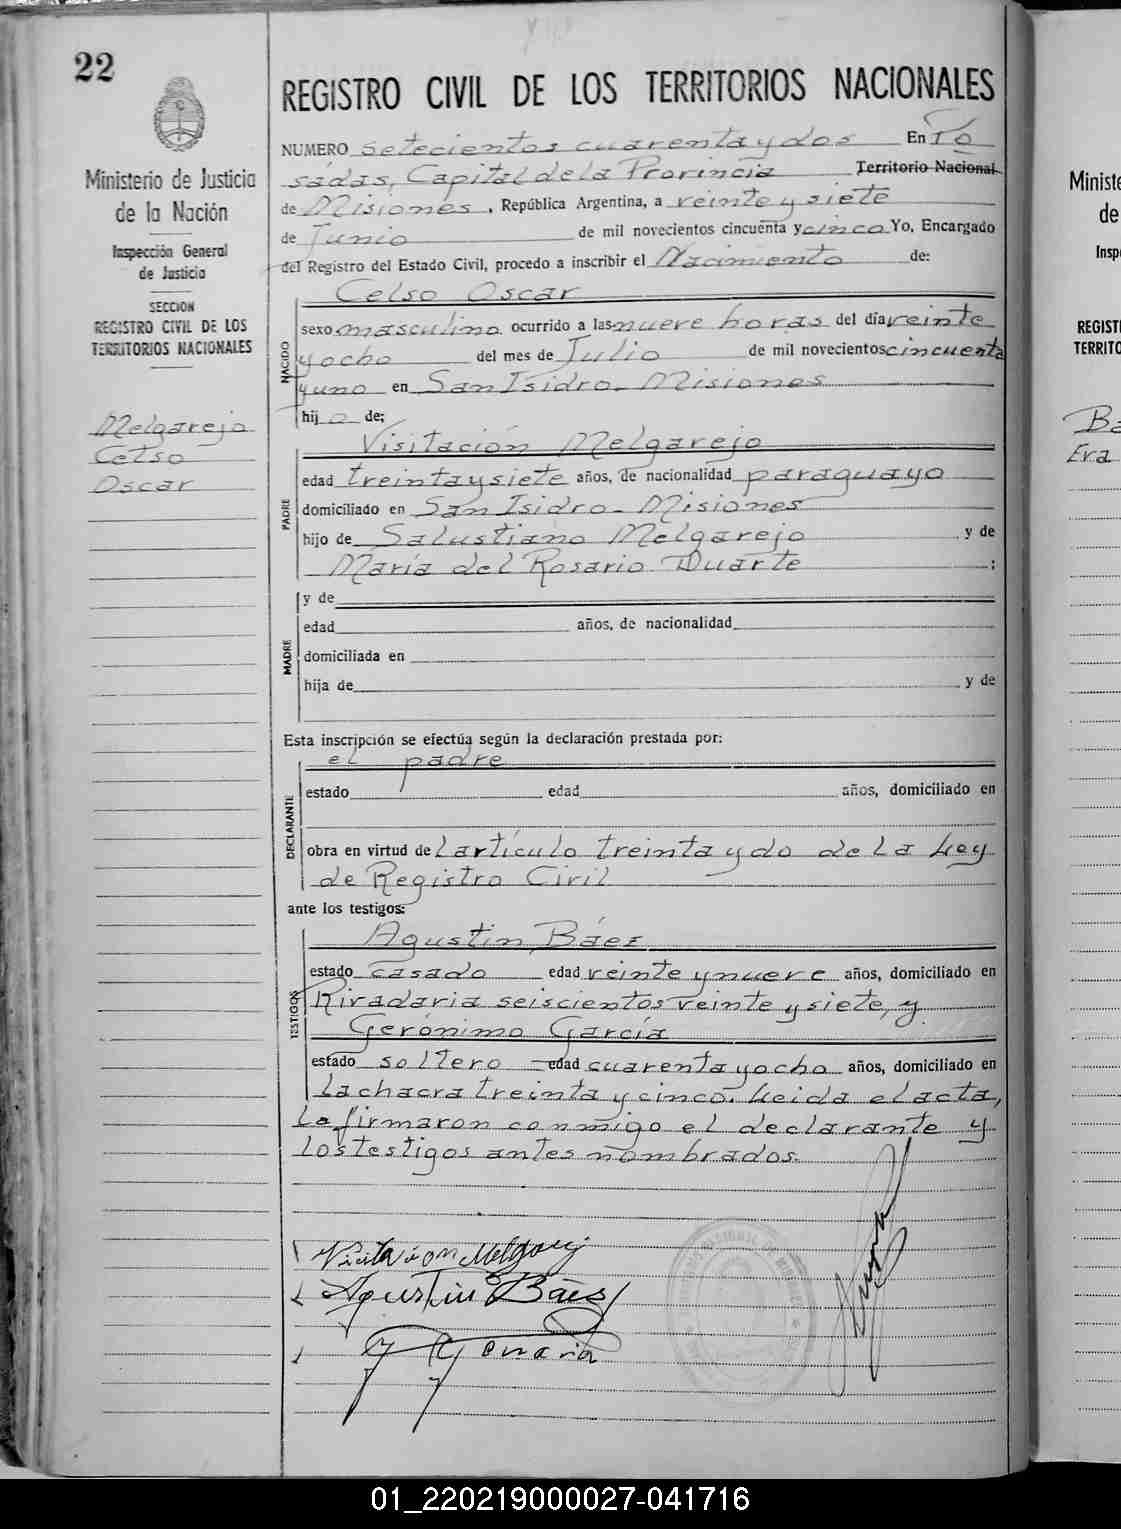 22
Ministerio de Justicia
de la Nación
Inspección General
de Justicia
SECCION
REGISTRO CIVIL DE LOS
TERRITORIOS NACIONALES
Melgarejo
Celso
Oscar
REGISTRO CIVIL DE LOS TERRITORIOS NACIONALES
NUMERO setecientos cuarenta y dos En Po
sadas, Capital de la Provincia Territorio Nacional
de Misiones, República Argentina, a veinte y siete
de Junio de mil novecientos cincuenta y cinco Yo, Encargado
del Registro del Estado Civil, procedo a inscribir el Nacimiento de:
NACIDO
Celso Oscar
sexo masculino ocurrido a las nueve horas del día veinte
y ocho del mes de Julio de mil novecientos cincuenta
y uno en San Isidro - Misiones
hijo de;
PADRE
Visitación Melgarejo
edad treinta y siete años, de nacionalidad paraguayo
domiciliado en San Isidro - Misiones
hijo de Salustiano Melgarejo y de
María del Rosario Duarte ;
MADRE
y de
edad años, de nacionalidad
domiciliada en
hija de y de
Esta inscripción se efectúa según la declaración prestada por:
DECLARANTE
el padre
estado edad años, domiciliado en
obra en virtud del artículo treinta y do de la Ley
de Registro Civil
ante los testigos:
TESTIGOS
Agustín Báez
estado casado edad veinte y nueve años, domiciliado en
Rivadavia seiscientos veinte y siete, y
Gerónimo García
estado soltero edad cuarenta y ocho años, domiciliado en
la chacra treinta y cinco. Leida el acta,
la firmaron conmigo el declarante y
los testigos antes nombrados.
Visitación Melgarejo
Agustin Báes
Ministe
de
Inspe
REGISTI
TERRITO
Ba
Fra
01_220219000027-041716